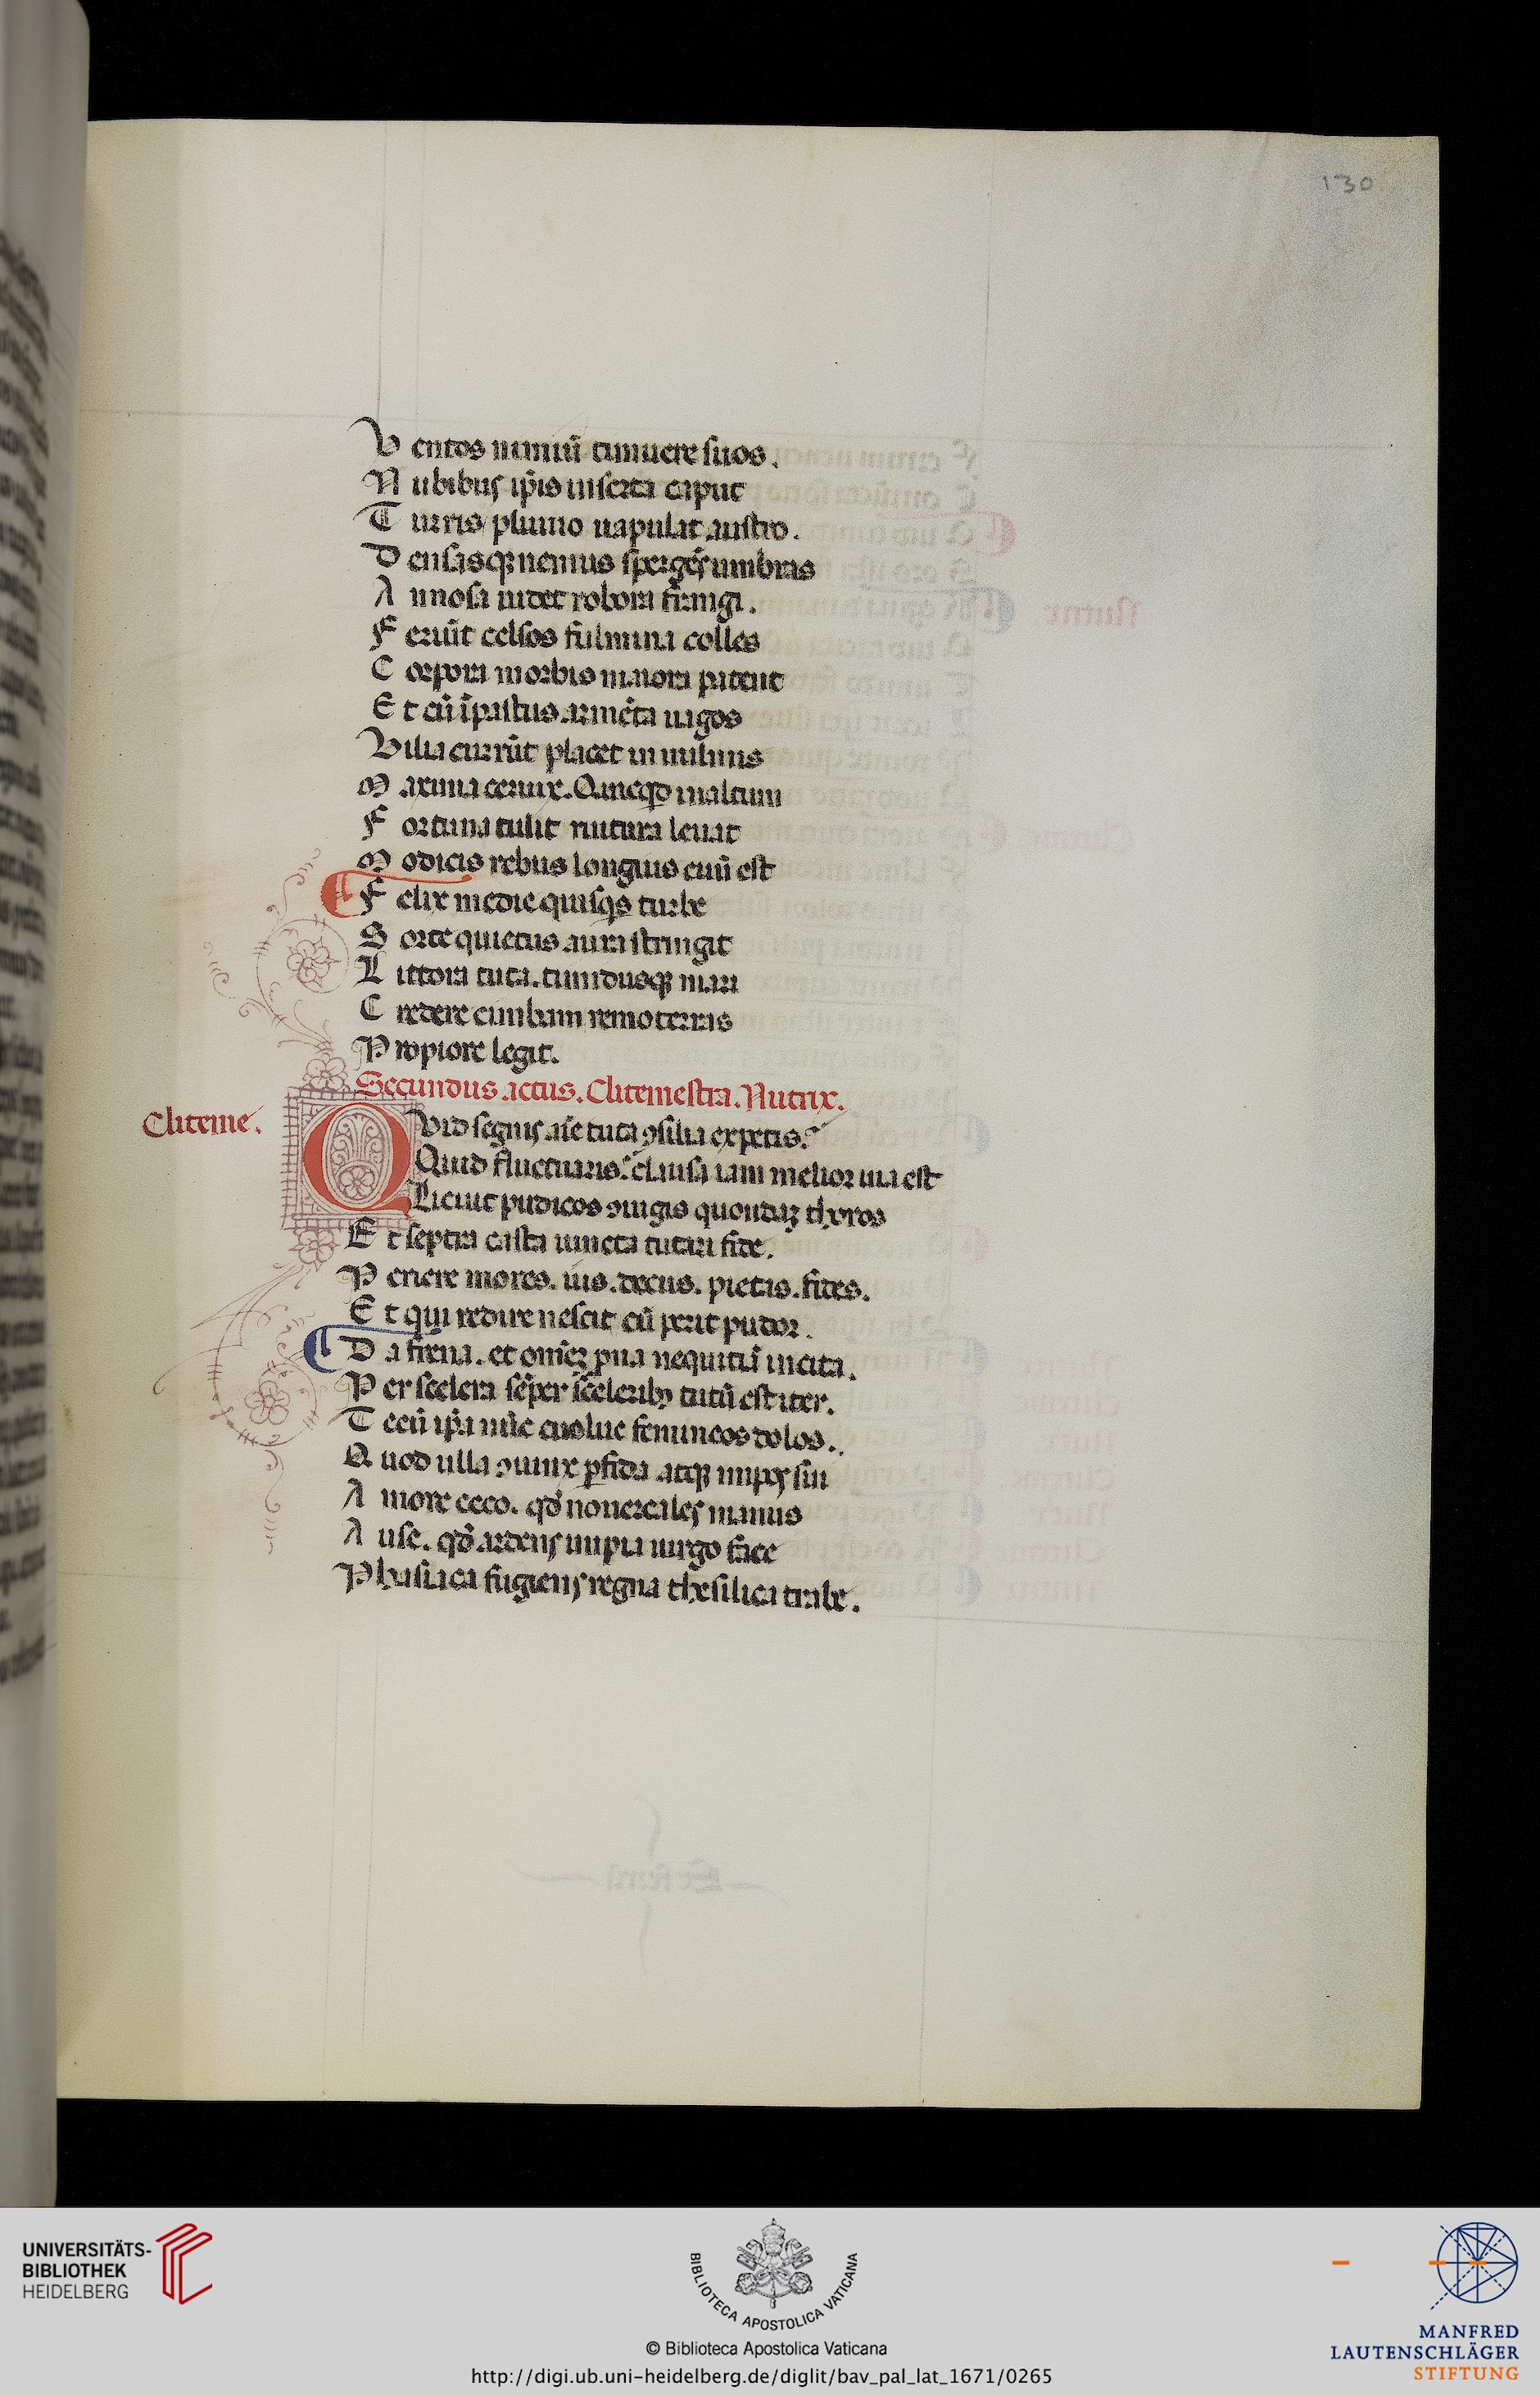 130
V entos nimiũ timuere suos.
N ubibus ip̃is inserta caput
T urris pluuio uapulat austro.
D ensasqꝫ nemus spargẽs umbras
A nnosa uidet robora frangi.
F eriũt celsos fulmina colles
C orpora morbis maiora patent
E t cũ ĩpastus armẽta uagos
Vilia currũt placet in uulnus
M axima ceruix. Quicqd in altum
F ortuna tulit ruitura leuat
M odicis rebus longius euũ est
F elix medie quisqs turbe
S orte quietus aura stringit
L ittora tuta. timidusqꝫ mari
C redere cimbam remo terras
P ropiore legit.
Secundus actus. Clitemestra. Nutrix.
Cliteme.
QVid segnis aĩe tuta ꝯsilia expetis?
Quid fluctuaris? clausa iam melior uia est
Licuit pudicos ꝯiugis quondaꝫ thoros
E t septra casta uincta tutari fide.
P eriere mores. ius. decus. pietas. fides.
E t qui redire nescit cũ perit pudor.
D a frena. et omẽꝫ pna nequitiã incita.
P er scelera sẽper sceleribꝫ tutũ est iter.
T ecũ ip̃a nũc euolue femineos dolos.
Q uod ulla ꝯiunx ꝑfida atqꝫ impos sui
A more ceco. qđ nouercales manus
A use. qđ ardens impia uirgo face
Phasiaca fugiens regna thesilica trabe.
UNIVERSITÄTS-
BIBLIOTHEK
HEIDELBERG
BIBLIOTECA APOSTOLICA VATICANA
© Biblioteca Apostolica Vaticana
http://digi.ub.uni-heidelberg.de/diglit/bav_pal_lat_1671/0265
MANFRED
LAUTENSCHLÄGER
STIFTUNG